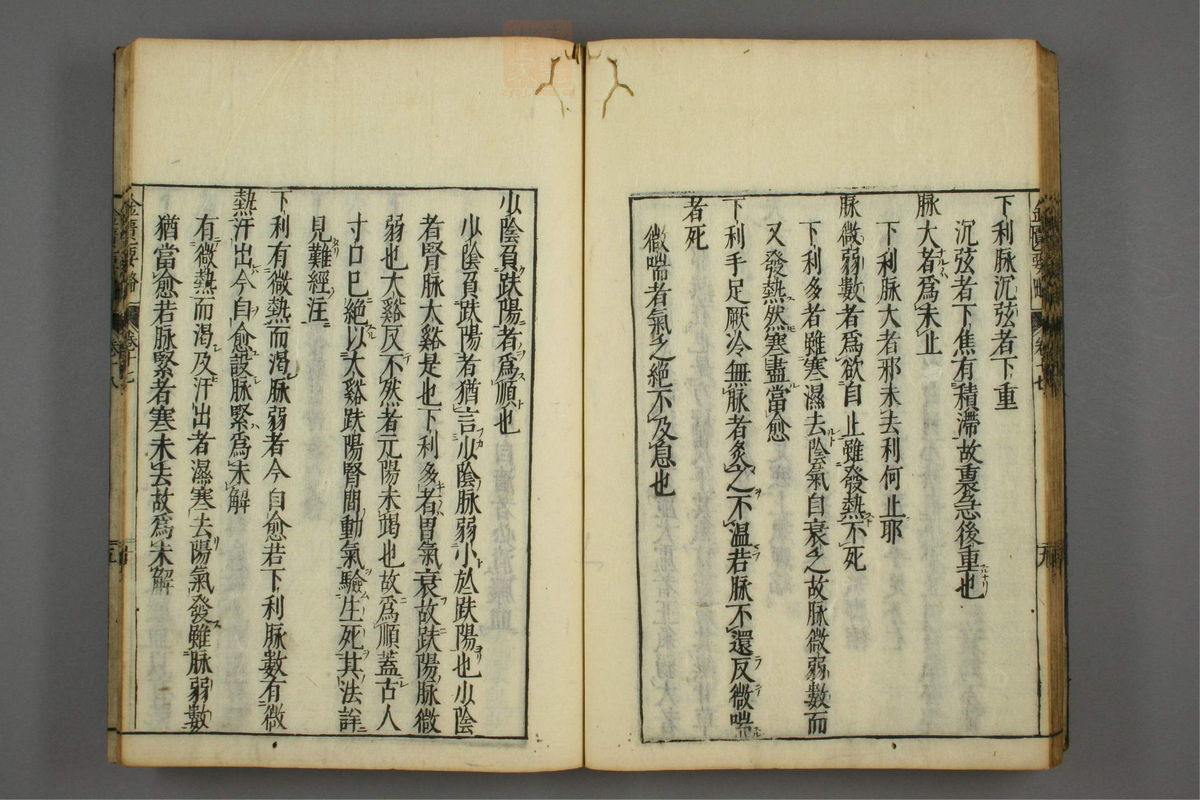 下利脉沉弦者下重
沉弦者下焦有積滯故裏急後重也
脉大者爲未止
下利脉大者邪未去利何止耶
脉微弱數者爲欲自止雖發熱不死
下利多者雖寒濕去陰氣自衰之故脉微弱數而
又發熱然寒盡當愈
下利手足厥冷無脉者灸之不溫若脉不還反微喘
者死
微喘者氣之絕不及息也
少陰負趺陽者爲順也
少陰負趺陽者猶言少陰脉弱小於趺陽也少陰
者腎脉太谿是也下利多者胃氣衰故趺陽脉微
弱也太谿反不然者元陽未竭也故爲順蓋古人
寸口已絕以太谿趺陽腎間動氣驗生死其法詳
見難經注
下利有微熱而渴脉弱者今自愈若下利脉數有微
熱汗出今自愈設脉緊爲未解
有微熱而渴及汗出者濕寒去陽氣發雖脉弱數
猶當愈若脉緊者寒未去故爲未解